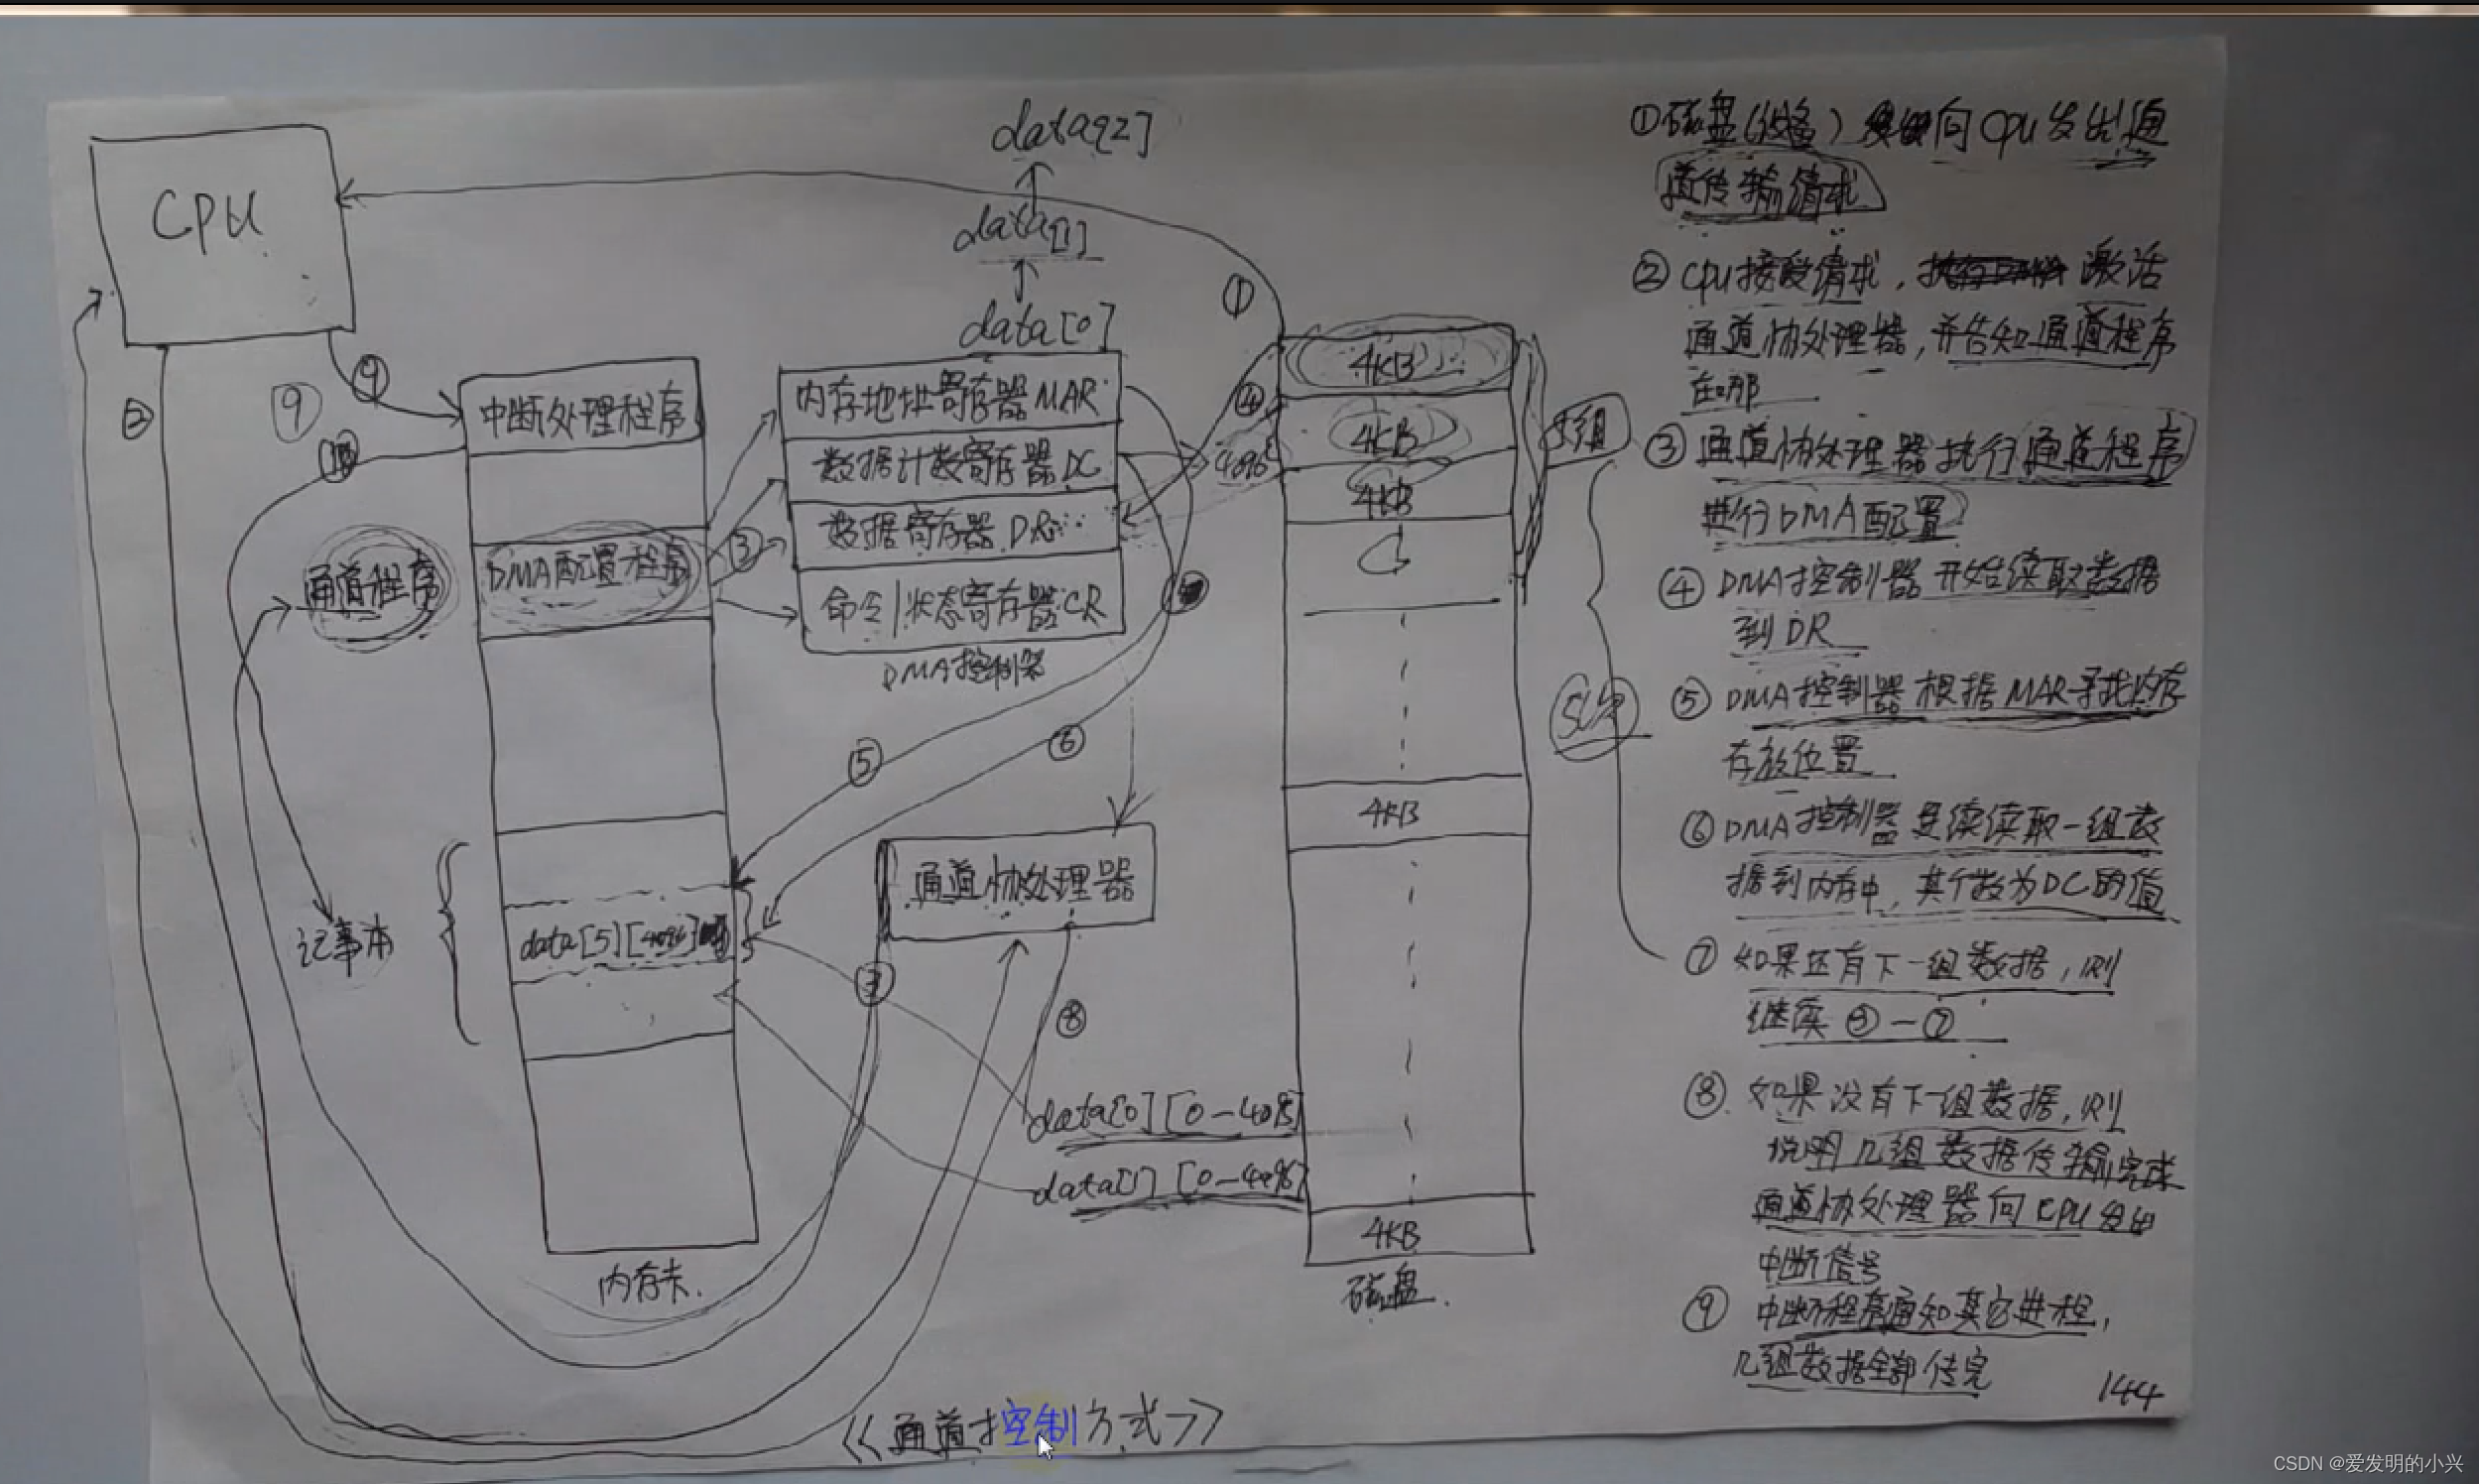 data[2]
data[1]
data[0]
CPU
①
②
⑨
⑨
中断处理程序
内存地址寄存器MAR
数据计数寄存器DC
数据寄存器DR
命令|状态寄存器CR
DMA控制器
③
④
4096
通道程序
DMA配置程序
⑤
⑥
记事本
data[5][4096]
通道协处理器
③
⑧
data[0][0-4096]
data[1][0-4096]
内存卡.
4KB
4KB
4KB
4KB
4KB
磁盘.
5组
①磁盘(设备)向CPU发出通
道传输请求
②CPU接受请求,激活
通道协处理器,并告知通道程序
在哪
③通道协处理器执行通道程序
进行DMA配置
④DMA控制器开始读取数据
到DR
⑤DMA控制器根据MAR寻找内存
存放位置
⑥DMA控制器连续读取一组数
据到内存中,其个数为DC的值
⑦如果还有下一组数据,则
继续③-⑦
⑧.如果没有下组数据,则
说明几组数据传输完成
通道协处理器向CPU发出
中断信号
⑨中断程序通知其它进程,
几组数据全部传完
144
<<通道控制方式>>
CSDN @爱发明的小兴